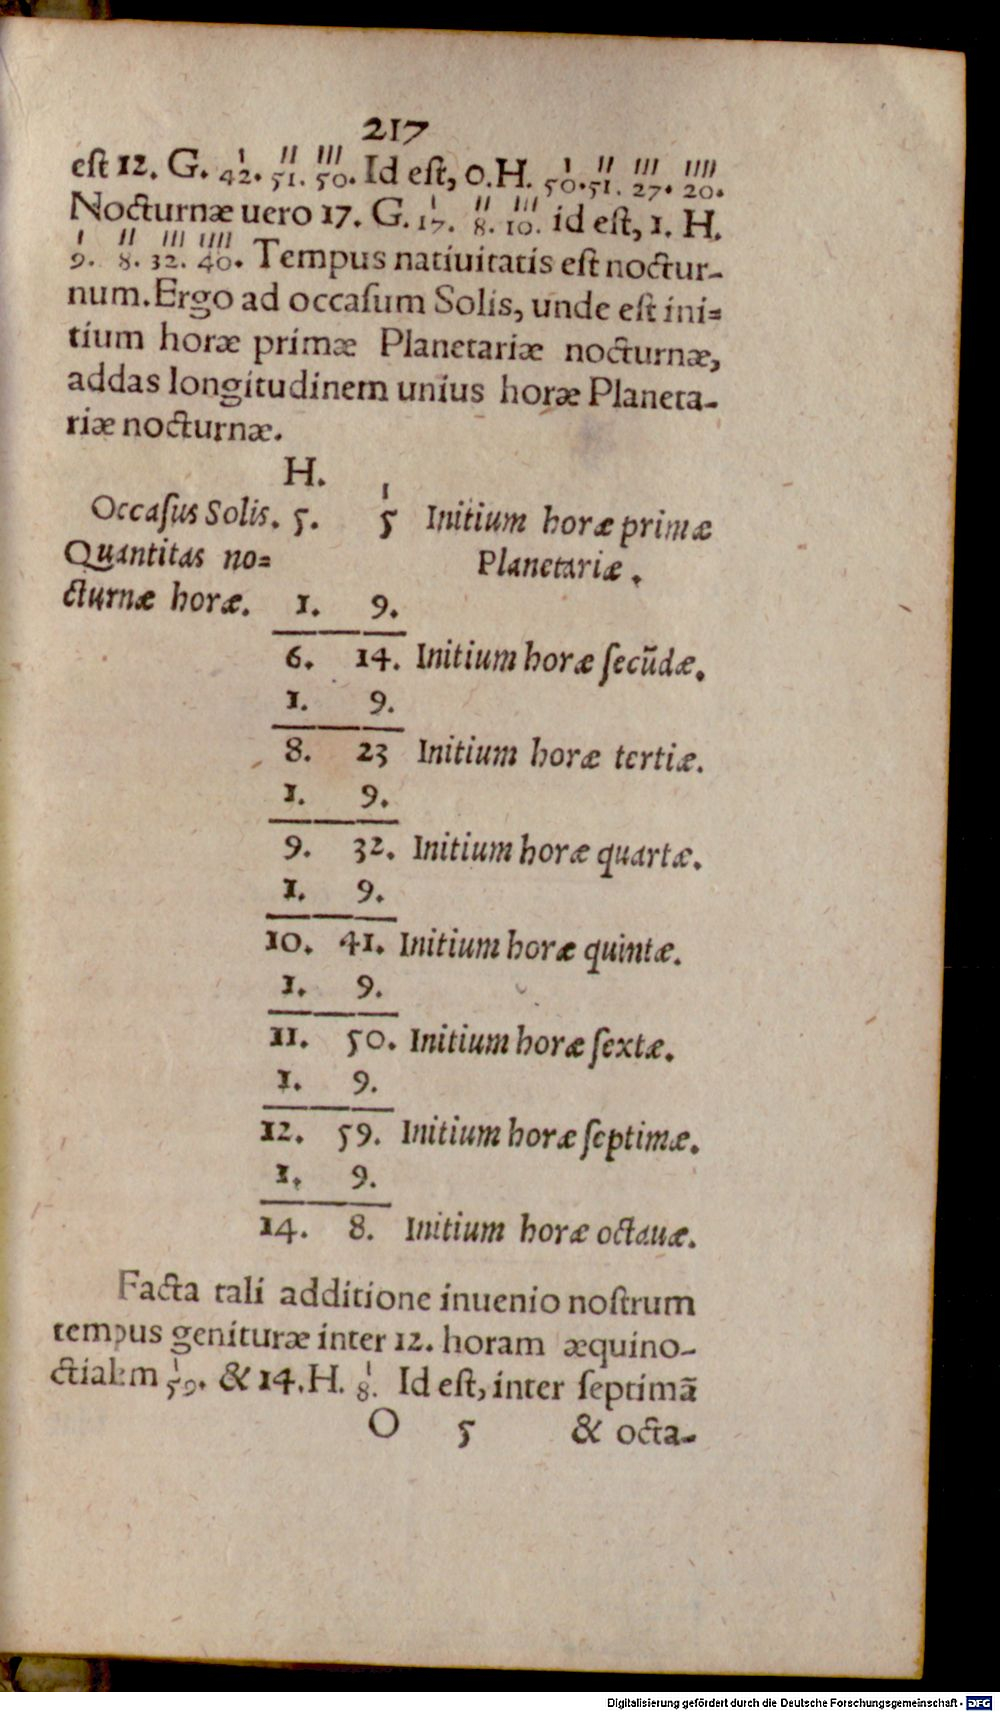 217
est 12. G. 42.′ 51.″ 50.‴ Id est, 0.H. 50.′ 51.″ 27.‴ 20.⁗
Nocturnæ uero 17. G. 17.′ 8.″ 10.‴ id est, 1. H.
9.′ 8.″ 32.‴ 40.⁗ Tempus natiuitatis est noctur-
num. Ergo ad occaſum Solis, unde eſt ini=
tium horæ primæ Planetariæ nocturnæ,
addas longitudinem unius horæ Planeta-
riæ nocturnæ.
H. ′
Occaſus Solis. 5. 5 Initium horæ primæ
Quantitas no= Planetariæ.
cturnæ horæ. 1. 9.
6. 14. Initium horæ ſecūdæ.
1. 9.
8. 23 Initium horæ tertiæ.
1. 9.
9. 32. Initium horæ quartæ.
1. 9.
10. 41. Initium horæ quintæ.
1. 9.
11. 50. Initium horæ ſextæ.
1. 9.
12. 59. Initium horæ ſeptimæ.
1. 9.
14. 8. Initium horæ octauæ.
Facta tali additione inuenio noſtrum
tempus genituræ inter 12. horam æquino-
ctialem 59.′ & 14.H. 8.′ Id eſt, inter ſeptimā
O 5 & octa-
Digitalisierung gefördert durch die Deutsche Forschungsgemeinschaft - DFG